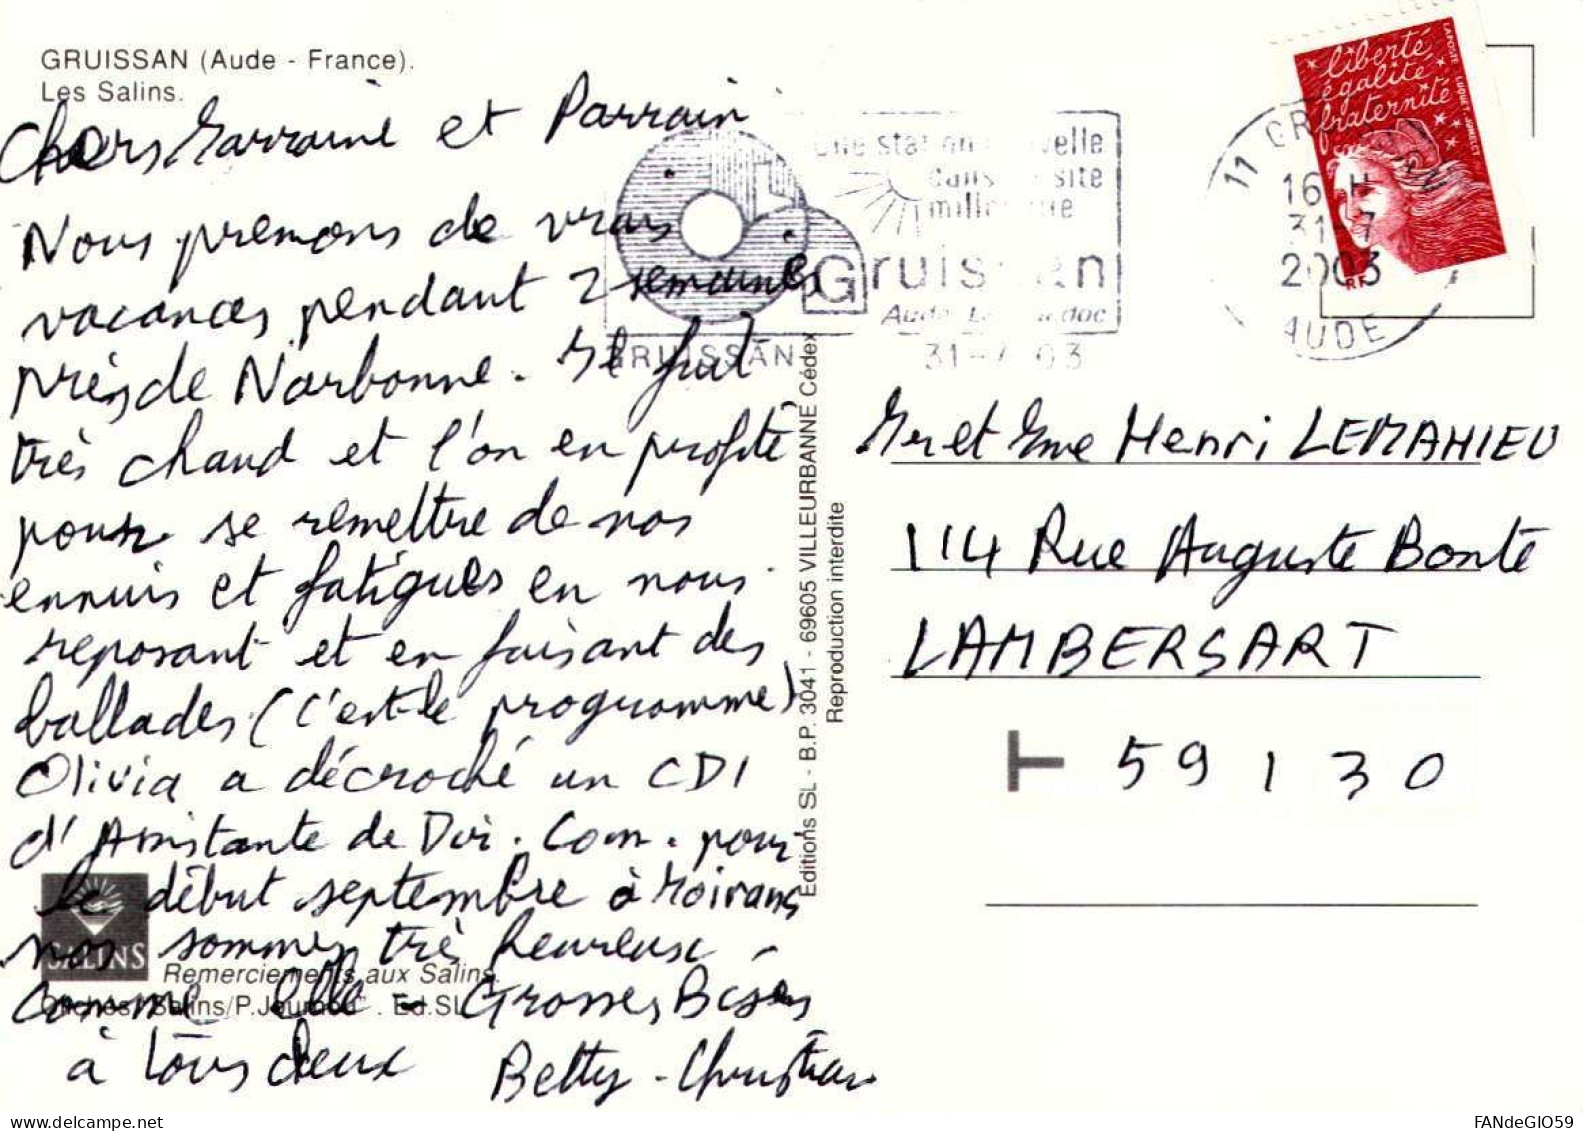 GRUISSAN (Aude - France).
Les Salins.
Chers Marraine et Parrain
Nous prenons de vrais
vacances pendant 2 semaines
près de Narbonne. Il fait
très chaud et l'on en profite
pour se remettre de nos
ennuis et fatigues en nous
reposant et en faisant des
ballades (c'est le programme)
Olivia a décroché un CDI
d'Assistante de Dir. Com. pour
le début septembre à Moirans
nos sommes très heureux
comme elle - Grosses Bises
à tous deux
Betty - Christian
SALINS
Remerciements aux Salins.
Clichés "Salins/P.Journou". Ed.SL
Editions SL - B.P. 3041 - 69605 VILLEURBANNE Cédex
Reproduction interdite
Une station nouvelle
dans un site
millénaire
Gruissan
Aude Languedoc
GRUISSAN
31-7 03
11 GRUISSAN
16 H
31-7
2003
AUDE
liberté
égalité
fraternité
LA POSTE LUQUET-JUMELET
RF
Mr et Mme Henri LEMAHIEU
114 Rue Auguste Bonte
LAMBERSART
T 59130
FANdeGIO59